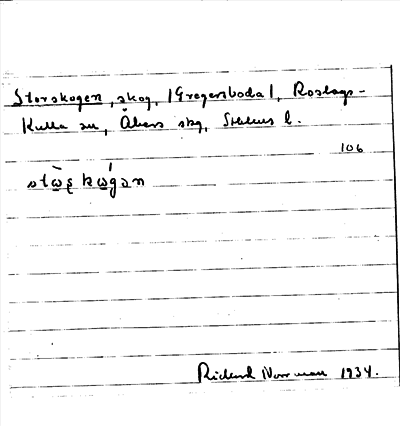 Storskogen, skog, [Gregersboda], Roslags-
Kulla sn, Åkers skg, Sthlms l.
106
stὼʂkώgən
Rickard Norrman 1934.